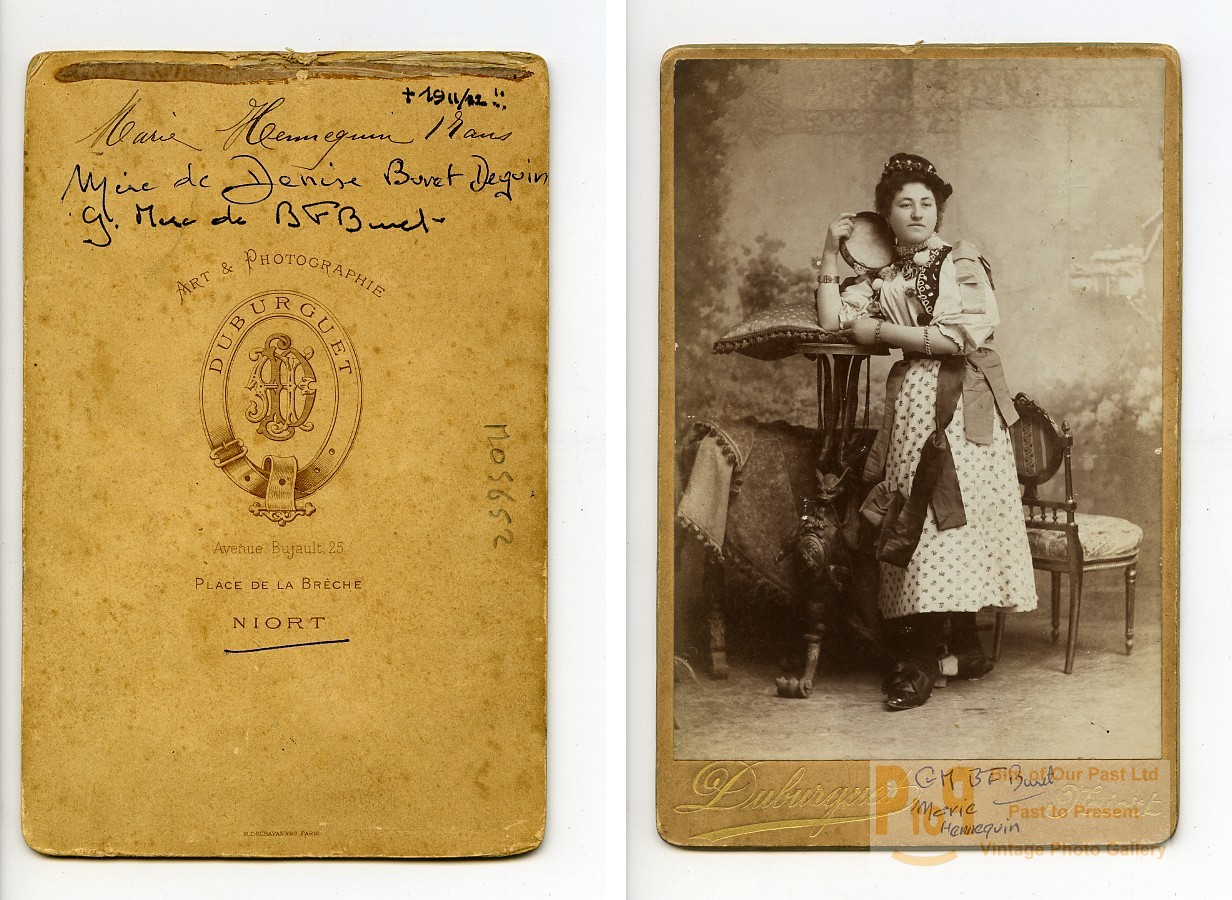 + 1911/12 !!
Marie Hennequin 18 ans
Mère de Denise Buret Deguin
G. Mère de BF Buret
ART & PHOTOGRAPHIE
DUBURGUET
Avenue Bujault, 25
PLACE DE LA BRÈCHE
NIORT
110S6S2
R. DECHAVANNES, PARIS
Duburguet Niort
GM BF Buret
Marie
Hennequin
P to P
Bits of Our Past Ltd
Past to Present
Vintage Photo Gallery